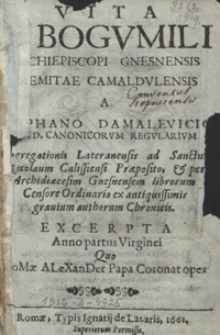 VITA
BOGVMILI
CHIEPISCOPI GNESNENSIS
EMITAE CAMALDVLENSIS
Conventus
A
PHANO DAMALEVICIO
D. CANONICORVM REGVLARIVM
gregationis Lateranensis ad Sanctum
colaum Calissiensi Præposito, & per
Archidiæcesim Gnesnensem librorum
Censore Ordinario ex antiquissimis
grauium authorum Chronicis.
EXCERPTA
Anno partus Virginei
Quo
oMæ ALeXanDer Papa Coronat oper
Romæ, Typis Ignatij de Lazaris, 1661.
Superiorum Permissu.